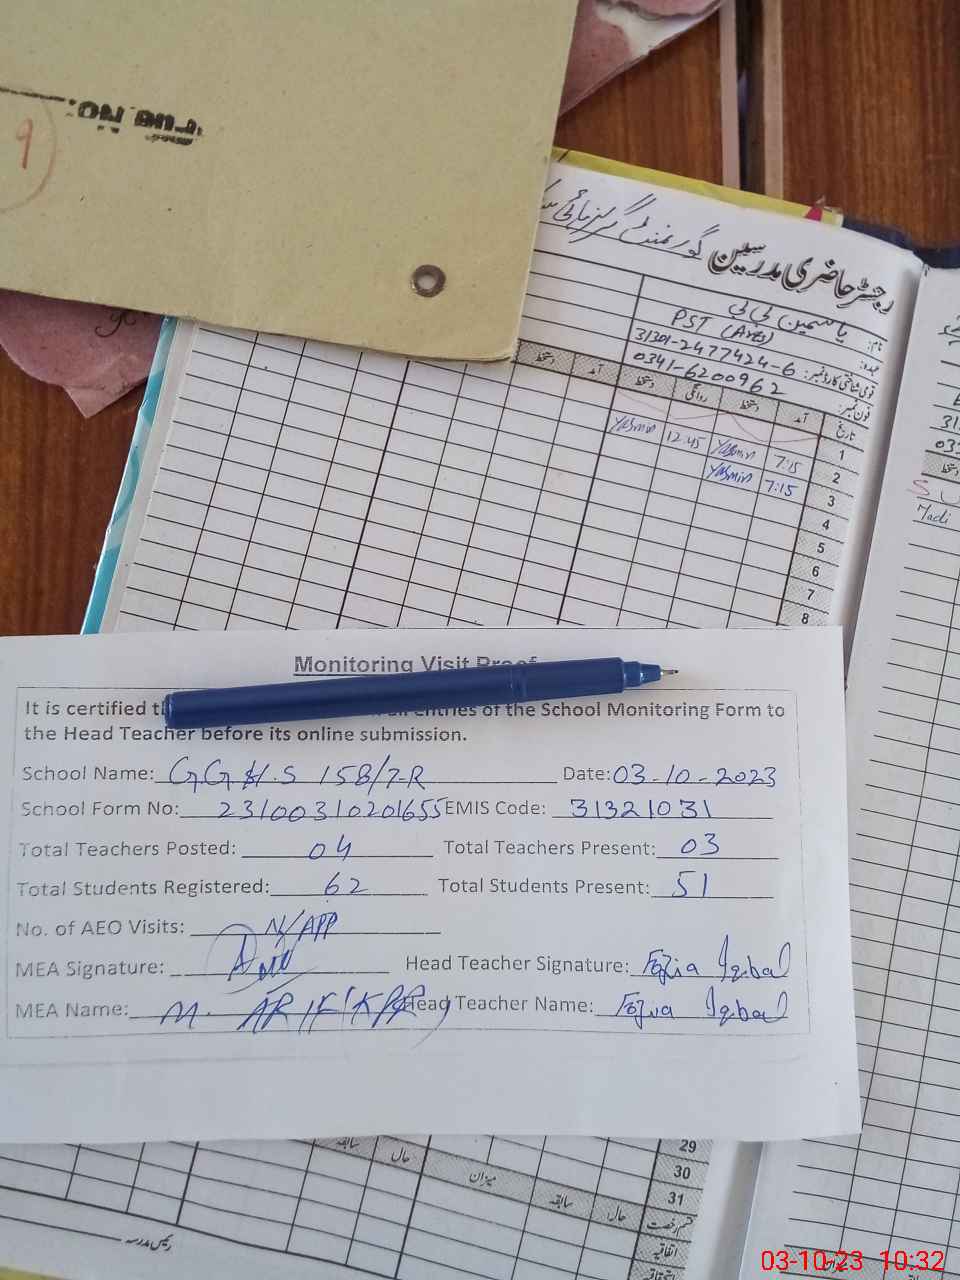 File No.
9
رجسٹر حاضری مدرسین گورنمنٹ گرلز ہائی
نام: یاسمین بی بی
عہدہ: PST (Arts)
قومی شناختی کارڈ نمبر: 31301-2477424-6
فون نمبر: 0341-6200962
تاریخ آمد دستخط روانگی دستخط آمد دستخط
1 7:15 Yasmin 12:45 Yasmin
2 7:15 Yasmin
3
4
5
6
7
8
Madi
Monitoring Visit Proof
It is certified th all entries of the School Monitoring Form to
the Head Teacher before its online submission.
School Name: GGH.S 158/7-R Date: 03-10-2023
School Form No: 23100310201655 EMIS Code: 31321031
Total Teachers Posted: 04 Total Teachers Present: 03
Total Students Registered: 62 Total Students Present: 51
No. of AEO Visits: N/APP
MEA Signature: Head Teacher Signature: Fozia Iqbal
MEA Name: M. ARIF Head Teacher Name: Fozia Iqbal
29
30
31
میزان حال سابقہ
قسم رخصت حال سابقہ
اتفاقیہ
رئیس مدرسہ
03-10-23 10:32